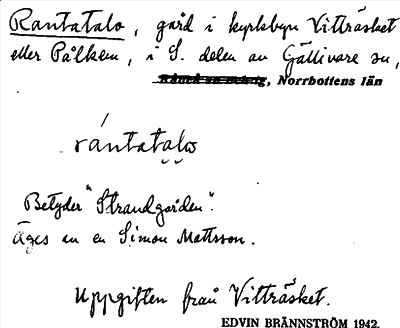 Rantatalo, gård i kyrkbyn Vitträsket
eller Pålkem, i S. delen av Gällivare sn,
Norrbottens län
rántatalo
Betyder "Strandgården".
Äges av en Simon Mattsson.
Uppgiften från Vitträsket.
EDVIN BRÄNNSTRÖM 1942.